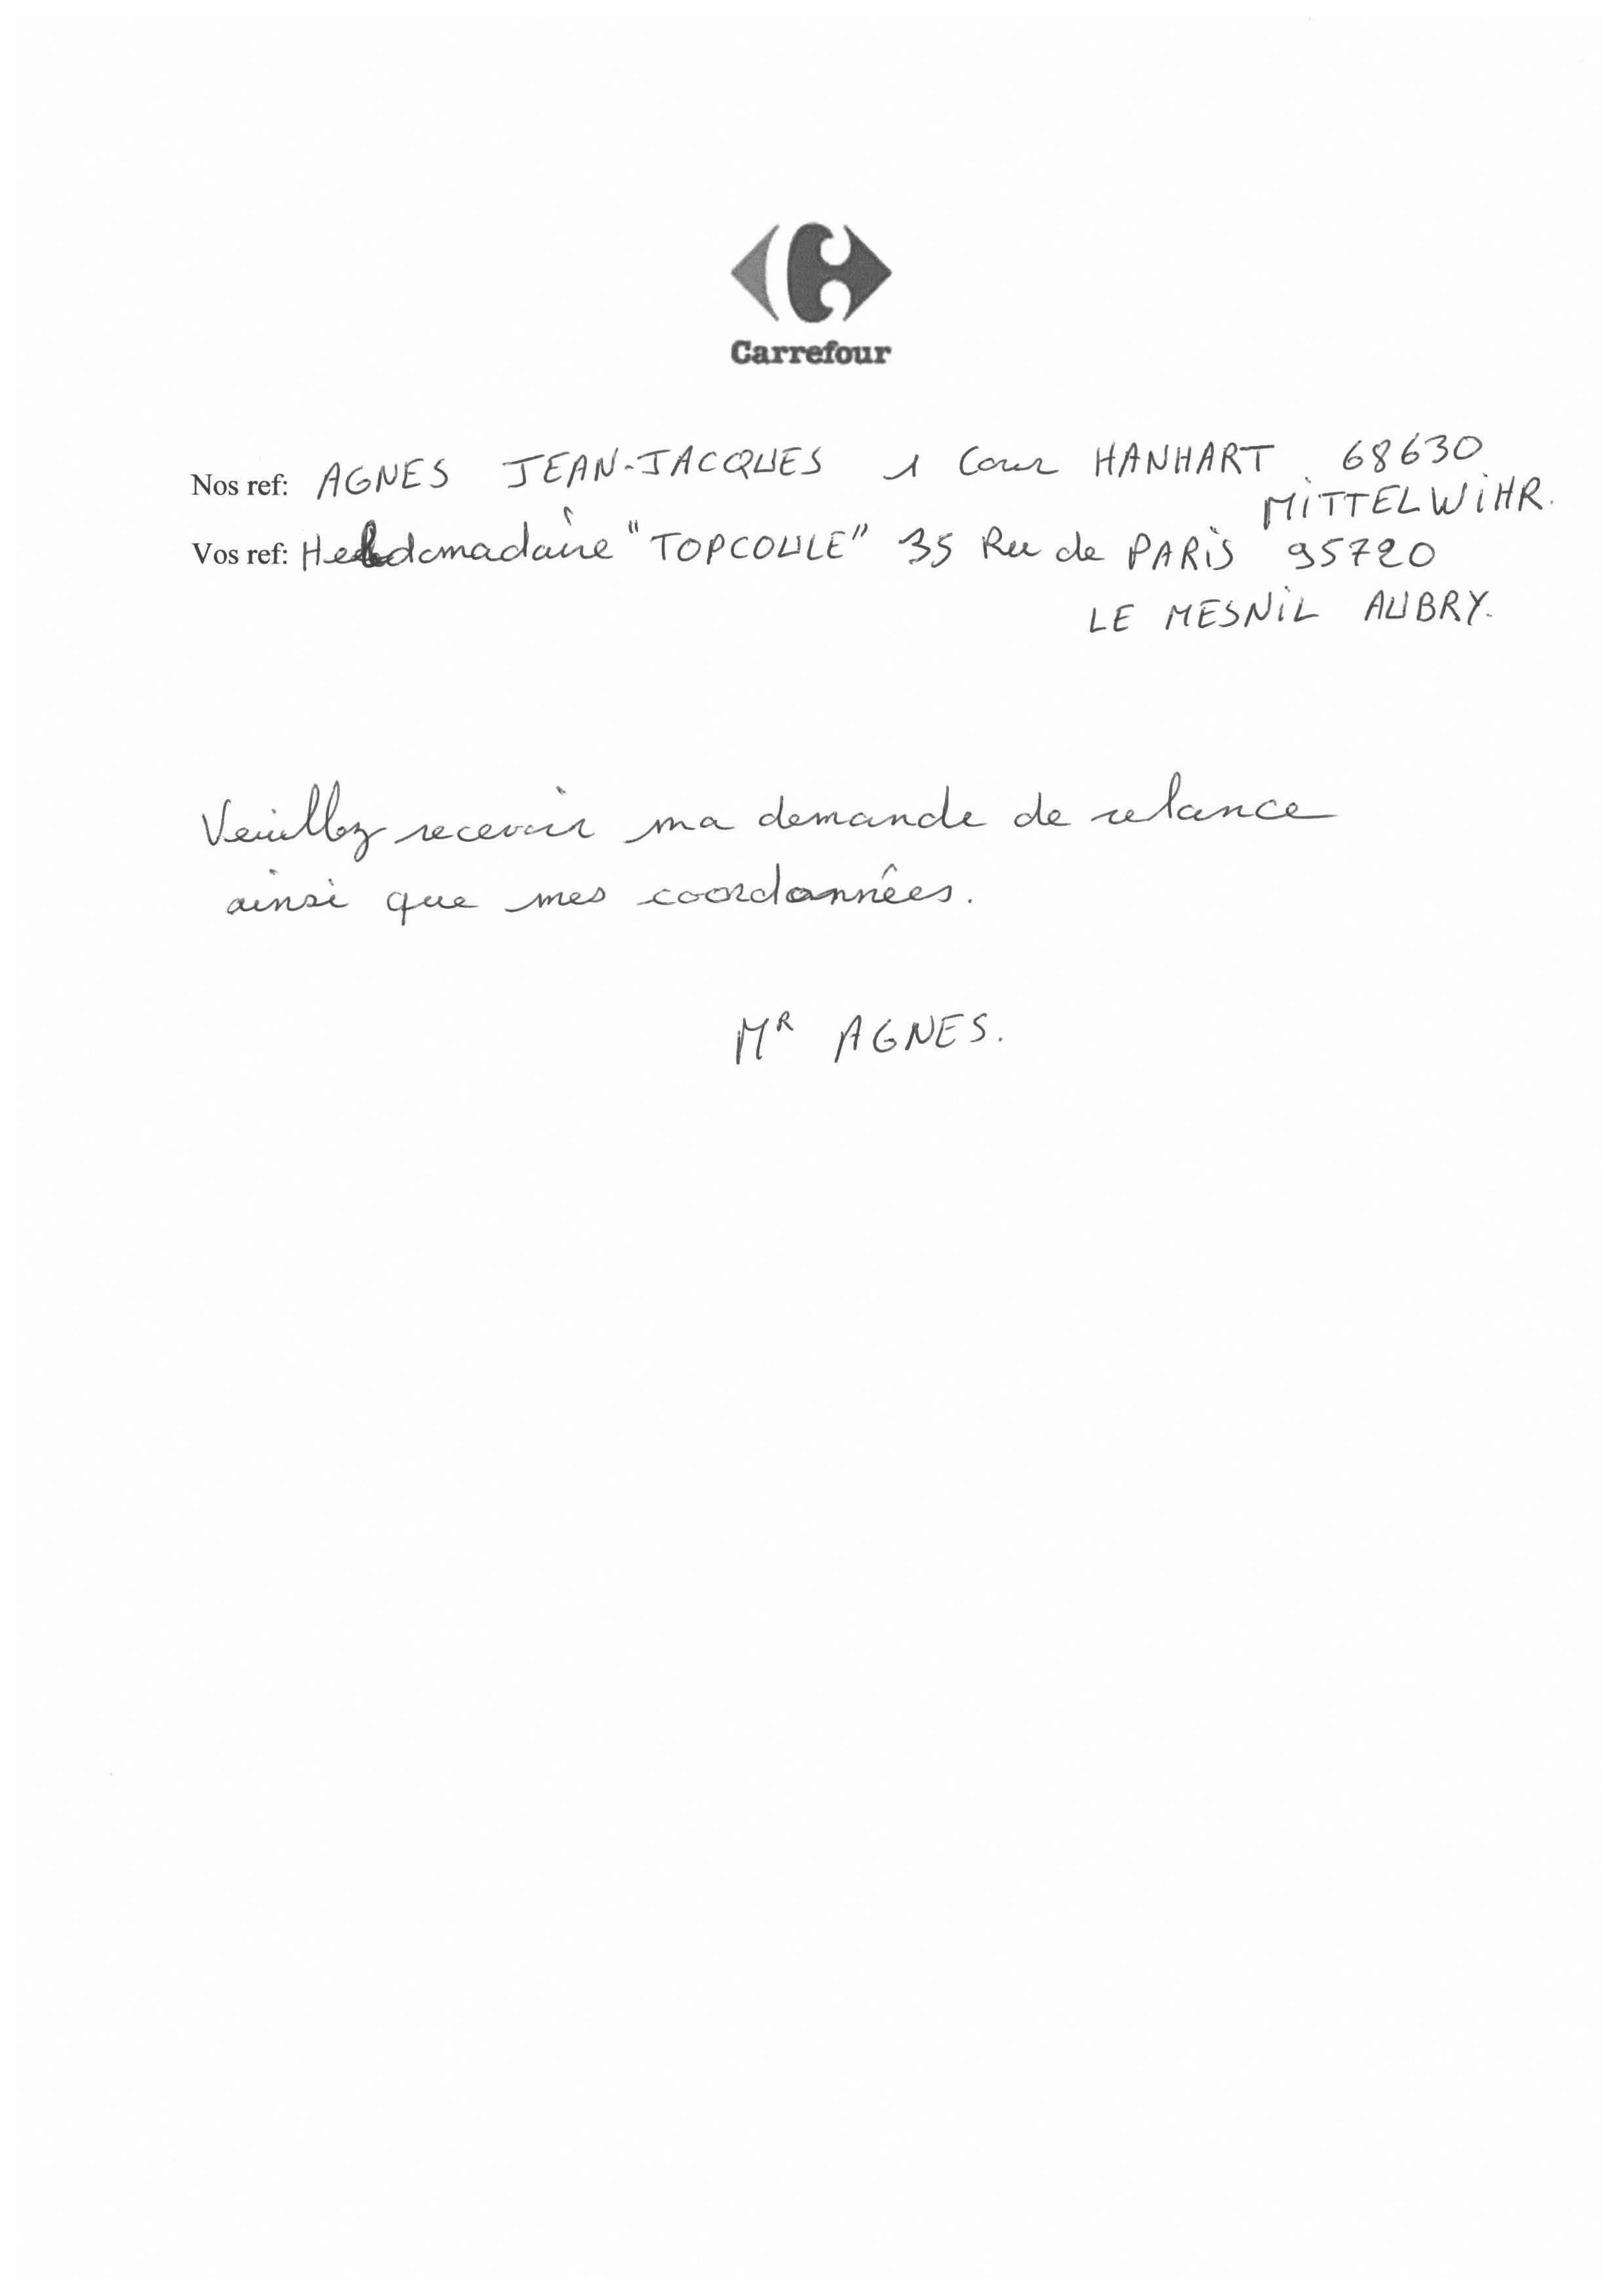 Carrefour
Nos ref: AGNES JEAN-JACQUES 1 Cour HANHART 68630
MiTTELWiHR.
Vos ref: Hebdomadaire "TOPCOULE" 35 Rue de PARiS 95720
LE MESNiL AUBRY.
Veuillez recevoir ma demande de relance
ainsi que mes coordonnées.
MR AGNES.